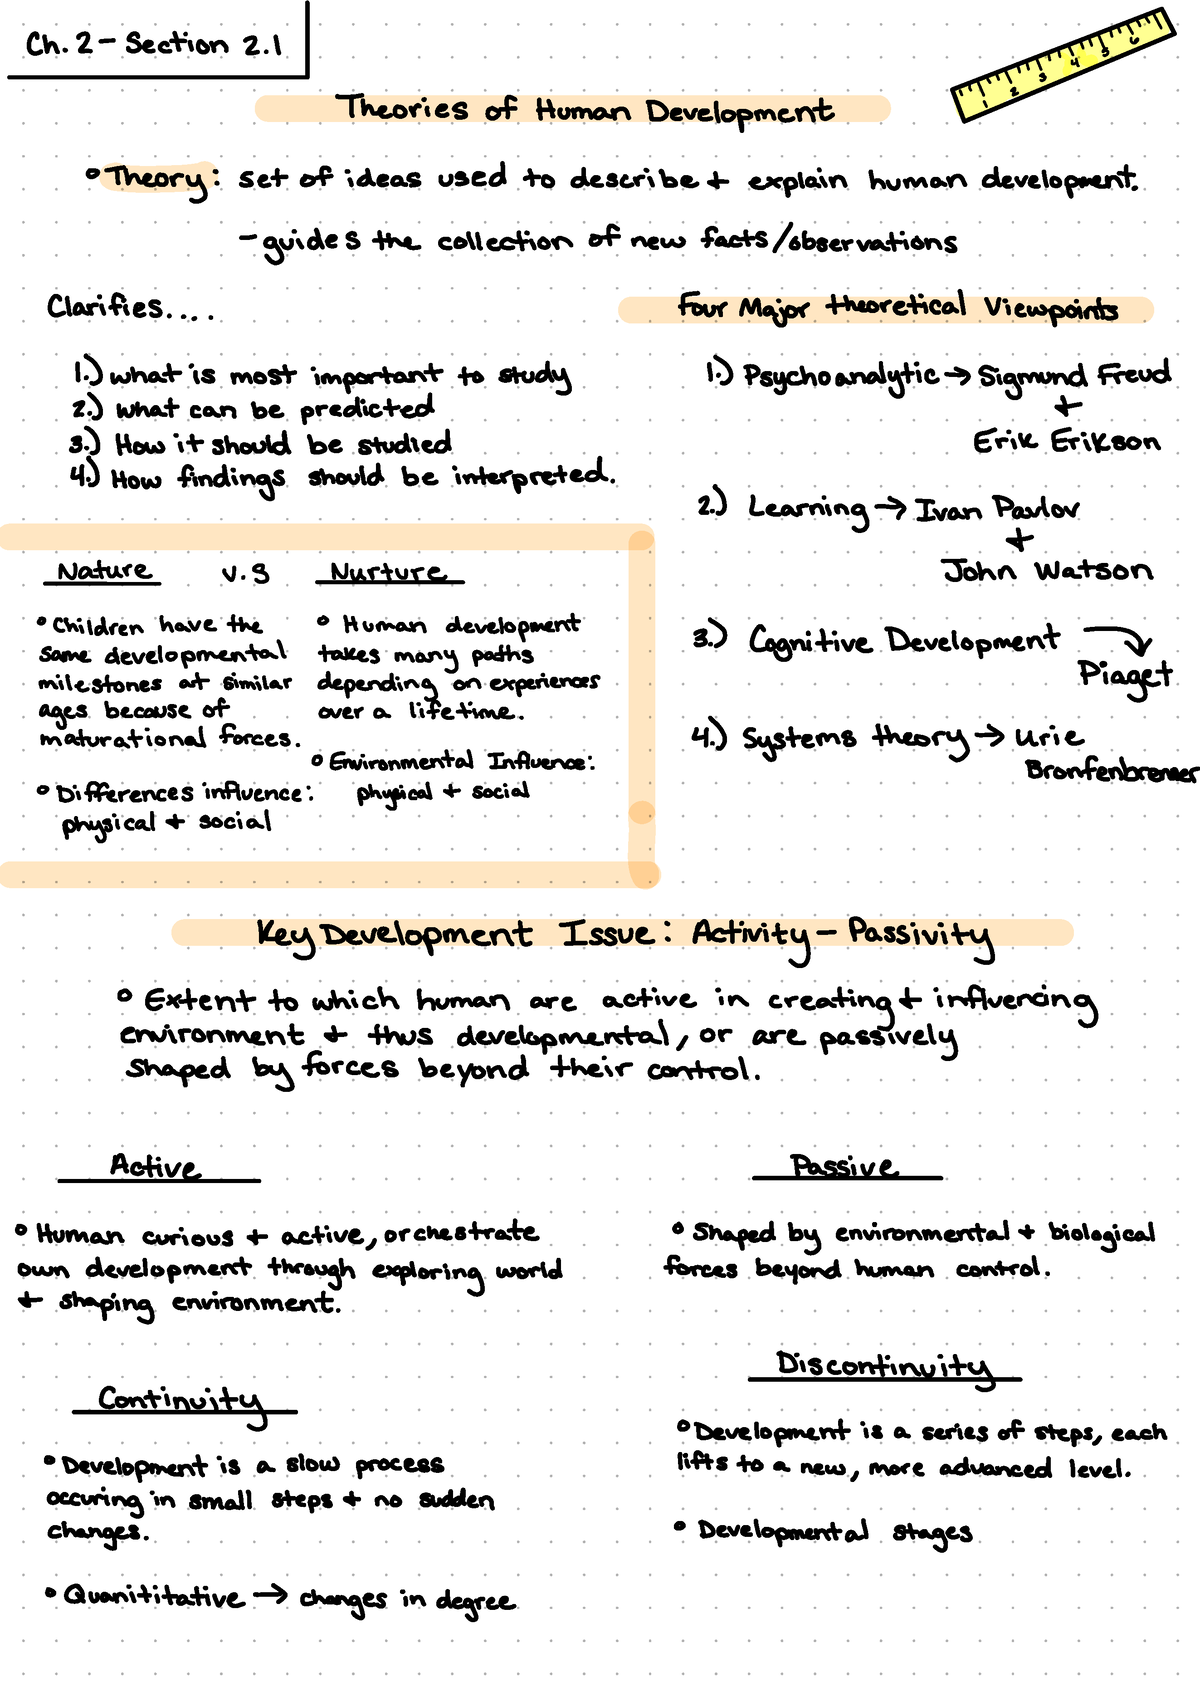 Ch. 2 - Section 2.1
1 2 3 4 5 6
Theories of Human Development
Theory: set of ideas used to describe + explain human development.
- guides the collection of new facts/observations
Clarifies....
1.) what is most important to study
2.) what can be predicted
3.) How it should be studied
4.) How findings should be interpreted.
Four Major theoretical Viewpoints
1.) Psychoanalytic → Sigmund Freud
+
Erik Erikson
2.) Learning → Ivan Pavlov
+
John Watson
3.) Cognitive Development
Piaget
4.) Systems theory → Urie
Bronfenbrenner
Nature v.s Nurture
Children have the
same developmental
milestones at similar
ages because of
maturational forces.
Differences influence:
physical + social
Human development
takes many paths
depending on experiences
over a lifetime.
Environmental Influence:
physical + social
Key Development Issue: Activity - Passivity
Extent to which human are active in creating + influencing
environment + thus developmental, or are passively
shaped by forces beyond their control.
Active
Human curious + active, orchestrate
own development through exploring world
+ shaping environment.
Passive
Shaped by environmental + biological
forces beyond human control.
Continuity
Development is a slow process
occuring in small steps + no sudden
changes.
Quanititative → changes in degree
Discontinuity
Development is a series of steps, each
lifts to a new, more advanced level.
Developmental stages